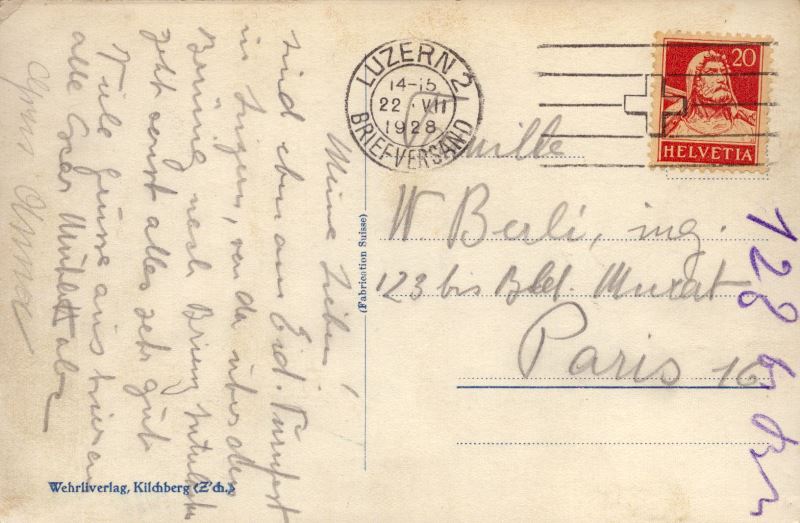 LUZERN 2
14-15
22·VII
1928
BRIEFVERSAND
20
HELVETIA
Famille
W Berli, ing.
123 bis Bld. Murat
Paris 16
128
(Fabrication Suisse)
Wehrliverlag, Kilchberg (Z'ch.)
Meine Lieben!
sind eben am Eid. Turnfest
in Luzern, von da über den
Brünig nach Brienz
geht sonst alles sehr gut
Viele Grüsse aus
alle Euer